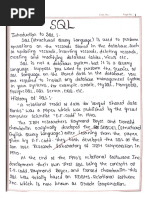 SQL
Introduction to SQL :
SQL (Structured Query Language) is used to perform
operations on the records stored in the database such
as updating records, inserting records, deleting records,
creating and modifying database tables, views etc.
SQL is not a database system, but it is a
query language.
Suppose you want to perform the queries of
SQL language on the stored data in the database. You
are required to install any database management
system in your systems, for example :- Oracle, MySQL,
History
"A Relational Model of Data for Large Shared Data
Banks" was a paper which was published by the great
computer scientist "E.F. Codd" in 1970.
The IBM researchers Raymond Boyce and Donald
Chamberlin originally developed the SEQUEL (Structured
English Query Language) after learning from the paper
given by E.F. Codd. They both developed the SQL at the
San Jose Research laboratory of IBM Corporation in
1970.
At the end of the 1970s, relational software Inc.
developed their own first SQL using the concepts of
E.F. Codd, Raymond Boyce, and Donald Chamberlin. This
SQL was totally based on RDBMS. Relational Software
Inc. which is now known as Oracle Corporation,